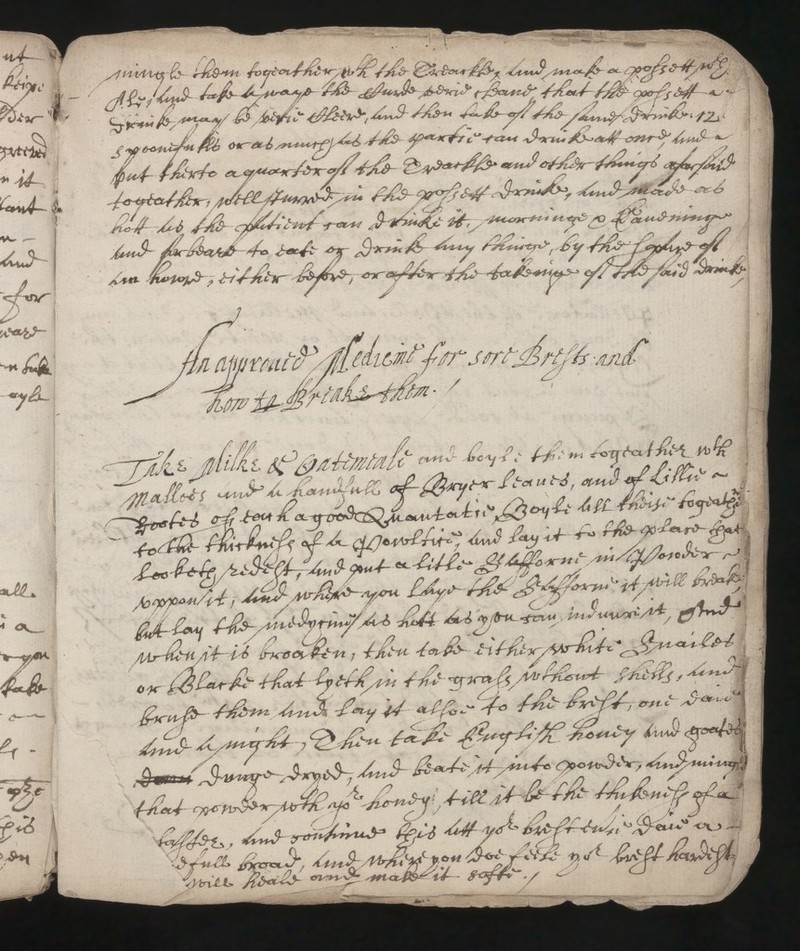 nt
keipe
greeved
n it
and
for
all
i a
take
his
en
mingle them togeather wth the Treackle, and make a possett wth
Ale, and take awaye the Curde verie cleane that the possett
drinke may be verie Cleere, and then take of the same drinke 12
spoonefulls or as much as the partie can drinke att once, and
put therto a quarter of the Treackle and other things aforsaid
togeather, well sturred in the possett drinke, and made as
hott as the patient can drinke it, morninge & Eaueninge
and forbeare to eate or drinke any thinge, by the space of
an howre, either before, or after the takeinge of the said drinke,
An approued Medicine for sore Brests and
how to Breake them./
Take Milke & Oatemeale and boyle them togeather wth
Mallows and a handfull of Bryer leaues, and of Lillie
Rootes of each a good Quantatie, Boyle all theise togeather
to the thickness of a Powltice, and lay it to the place that
looketh redest, and put a litle Safforne in Powder
vppon it, and where you laye the Safforne it will breake,
but lay the medycine as hott as you can indure it, And
when it is broaken, then take either white Snailes
or Blacke that lyeth in the grass wthout shells, and
bruse them and lay it alsoe to the brest, one daie
and a night, Then take English honey and goates
dunge dryed, and beate it into powder, and mingle
that powder wth yor honey, till it be the thickness of a
, and continue this att yor brest euerie daie a
full broad, and where you doe feele yor brest hardest
will heale and make it softe./